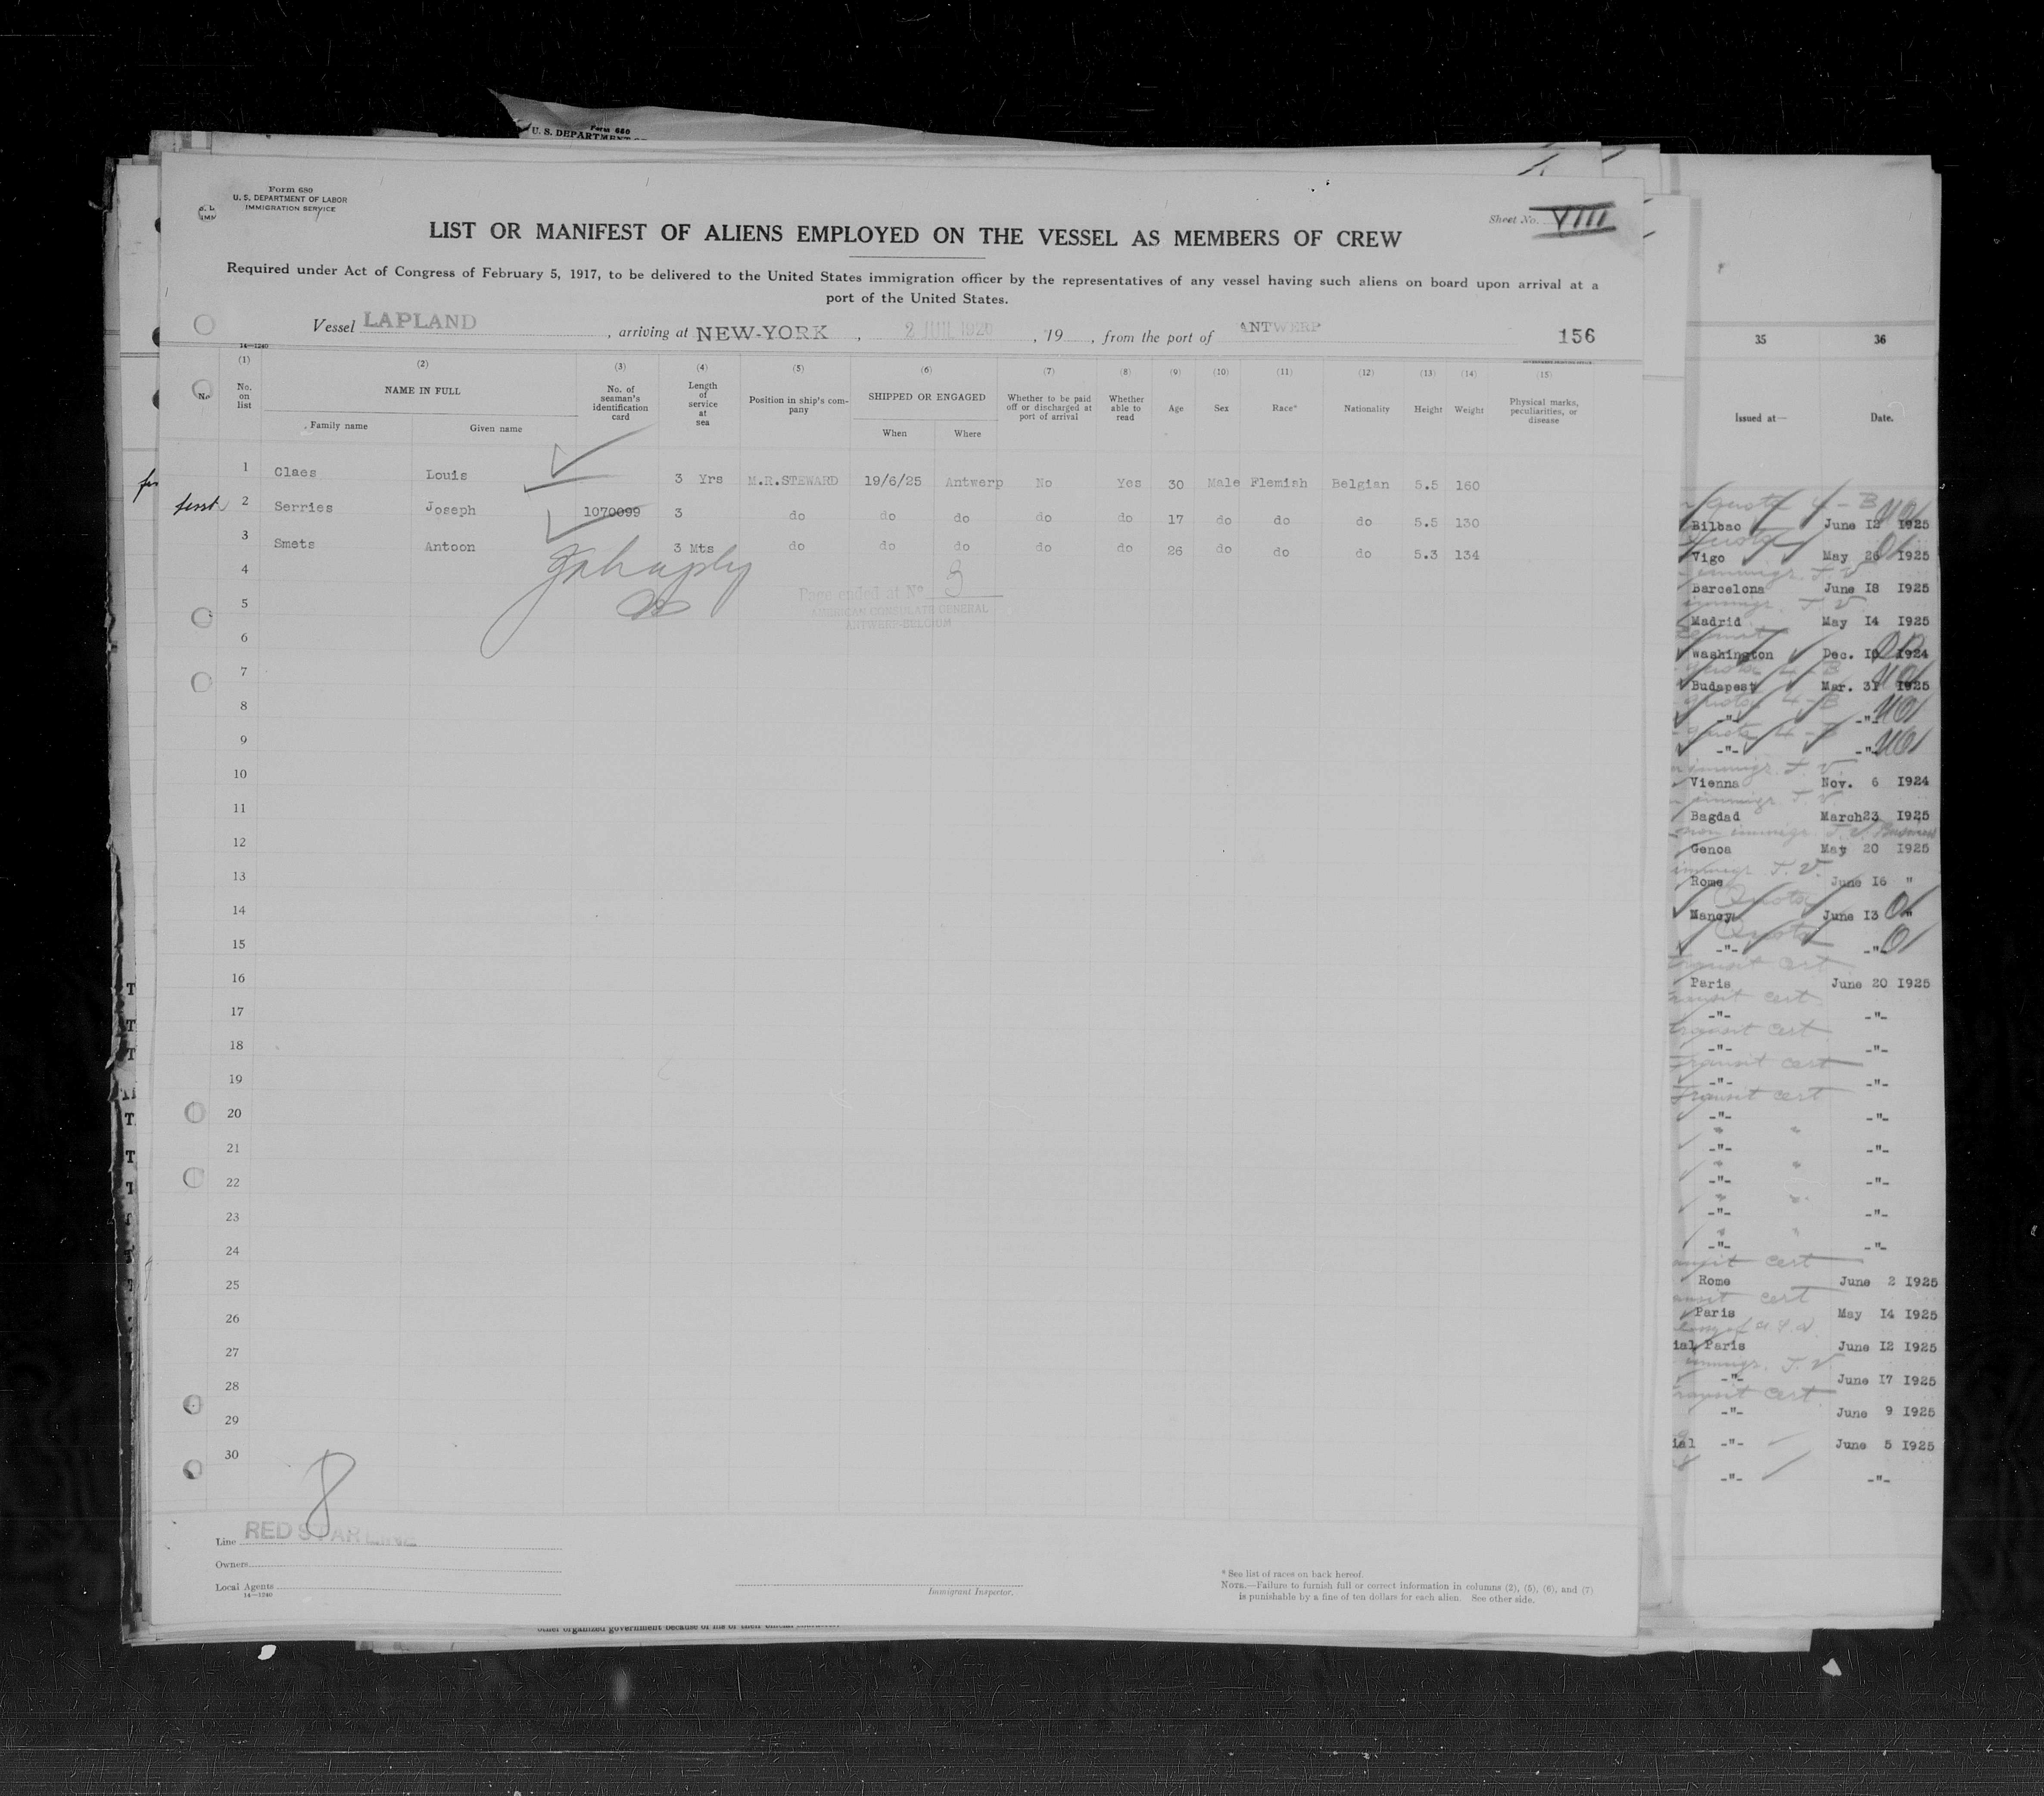 Form 680
U. S. DEPARTMENT OF
Form 680
U. S. DEPARTMENT OF LABOR
IMMIGRATION SERVICE
Sheet No. VIII
LIST OR MANIFEST OF ALIENS EMPLOYED ON THE VESSEL AS MEMBERS OF CREW
Required under Act of Congress of February 5, 1917, to be delivered to the United States immigration officer by the representatives of any vessel having such aliens on board upon arrival at a
port of the United States.
Vessel LAPLAND, arriving at NEW-YORK, 2 JUIL, 19, from the port of ANTWERP 156
14—1240
(1) (2) (3) (4) (5) (6) (7) (8) (9) (10) (11) (12) (13) (14) (15)
No. on list NAME IN FULL No. of seaman's identification card Length of service at sea Position in ship's company SHIPPED OR ENGAGED Whether to be paid off or discharged at port of arrival Whether able to read Age Sex Race* Nationality Height Weight Physical marks, peculiarities, or disease
Family name Given name When Where
1 Claes Louis 3 Yrs M.R.STEWARD 19/6/25 Antwerp No Yes 30 Male Flemish Belgian 5.5 160
first 2 Serries Joseph 1070099 3 do do do do do 17 do do do 5.5 130
3 Smets Antoon 3 Mts do do do do do 26 do do do 5.3 134
4
Page ended at No 3
5
AMERICAN CONSULATE GENERAL
ANTWERP-BELGIUM
6
7
8
9
10
11
12
13
14
15
16
17
18
19
20
21
22
23
24
25
26
27
28
29
30
8
Line RED STAR LINE
Owners
Local Agents
14—1240
Immigrant Inspector.
* See list of races on back hereof.
NOTE.—Failure to furnish full or correct information in columns (2), (5), (6), and (7)
is punishable by a fine of ten dollars for each alien. See other side.
other organized government because of his or their official character
35 36
Issued at— Date.
quota 4-B
Bilbao June 12 1925
Quota
Vigo May 26 1925
immigr. T.V.
Barcelona June 18 1925
immigr. T.V.
Madrid May 14 1925
Washington Dec. 10 1924
quota 4-B
Budapest Mar. 31 1925
quota 4-B
-"- -"-
quota 4-B
-"- -"-
immigr. T.V.
Vienna Nov. 6 1924
immigr. T.V.
Bagdad March 23 1925
non immigr. T.V. Business
Genoa May 20 1925
immigr. T.V.
Rome June 16 "
Quota
Nancy June 13 "
Quota
-"- -"-
Transit cert
Paris June 20 1925
Transit cert
-"- -"-
Transit cert
-"- -"-
Transit cert
-"- -"-
Transit cert
-"- -"-
" "
-"- -"-
" "
-"- -"-
" "
-"- -"-
" "
-"- -"-
Transit cert
Rome June 2 1925
Transit cert
Paris May 14 1925
ial Paris June 12 1925
immigr. T.V.
-"- June 17 1925
Transit cert
-"- June 9 1925
ial -"- June 5 1925
-"- -"-